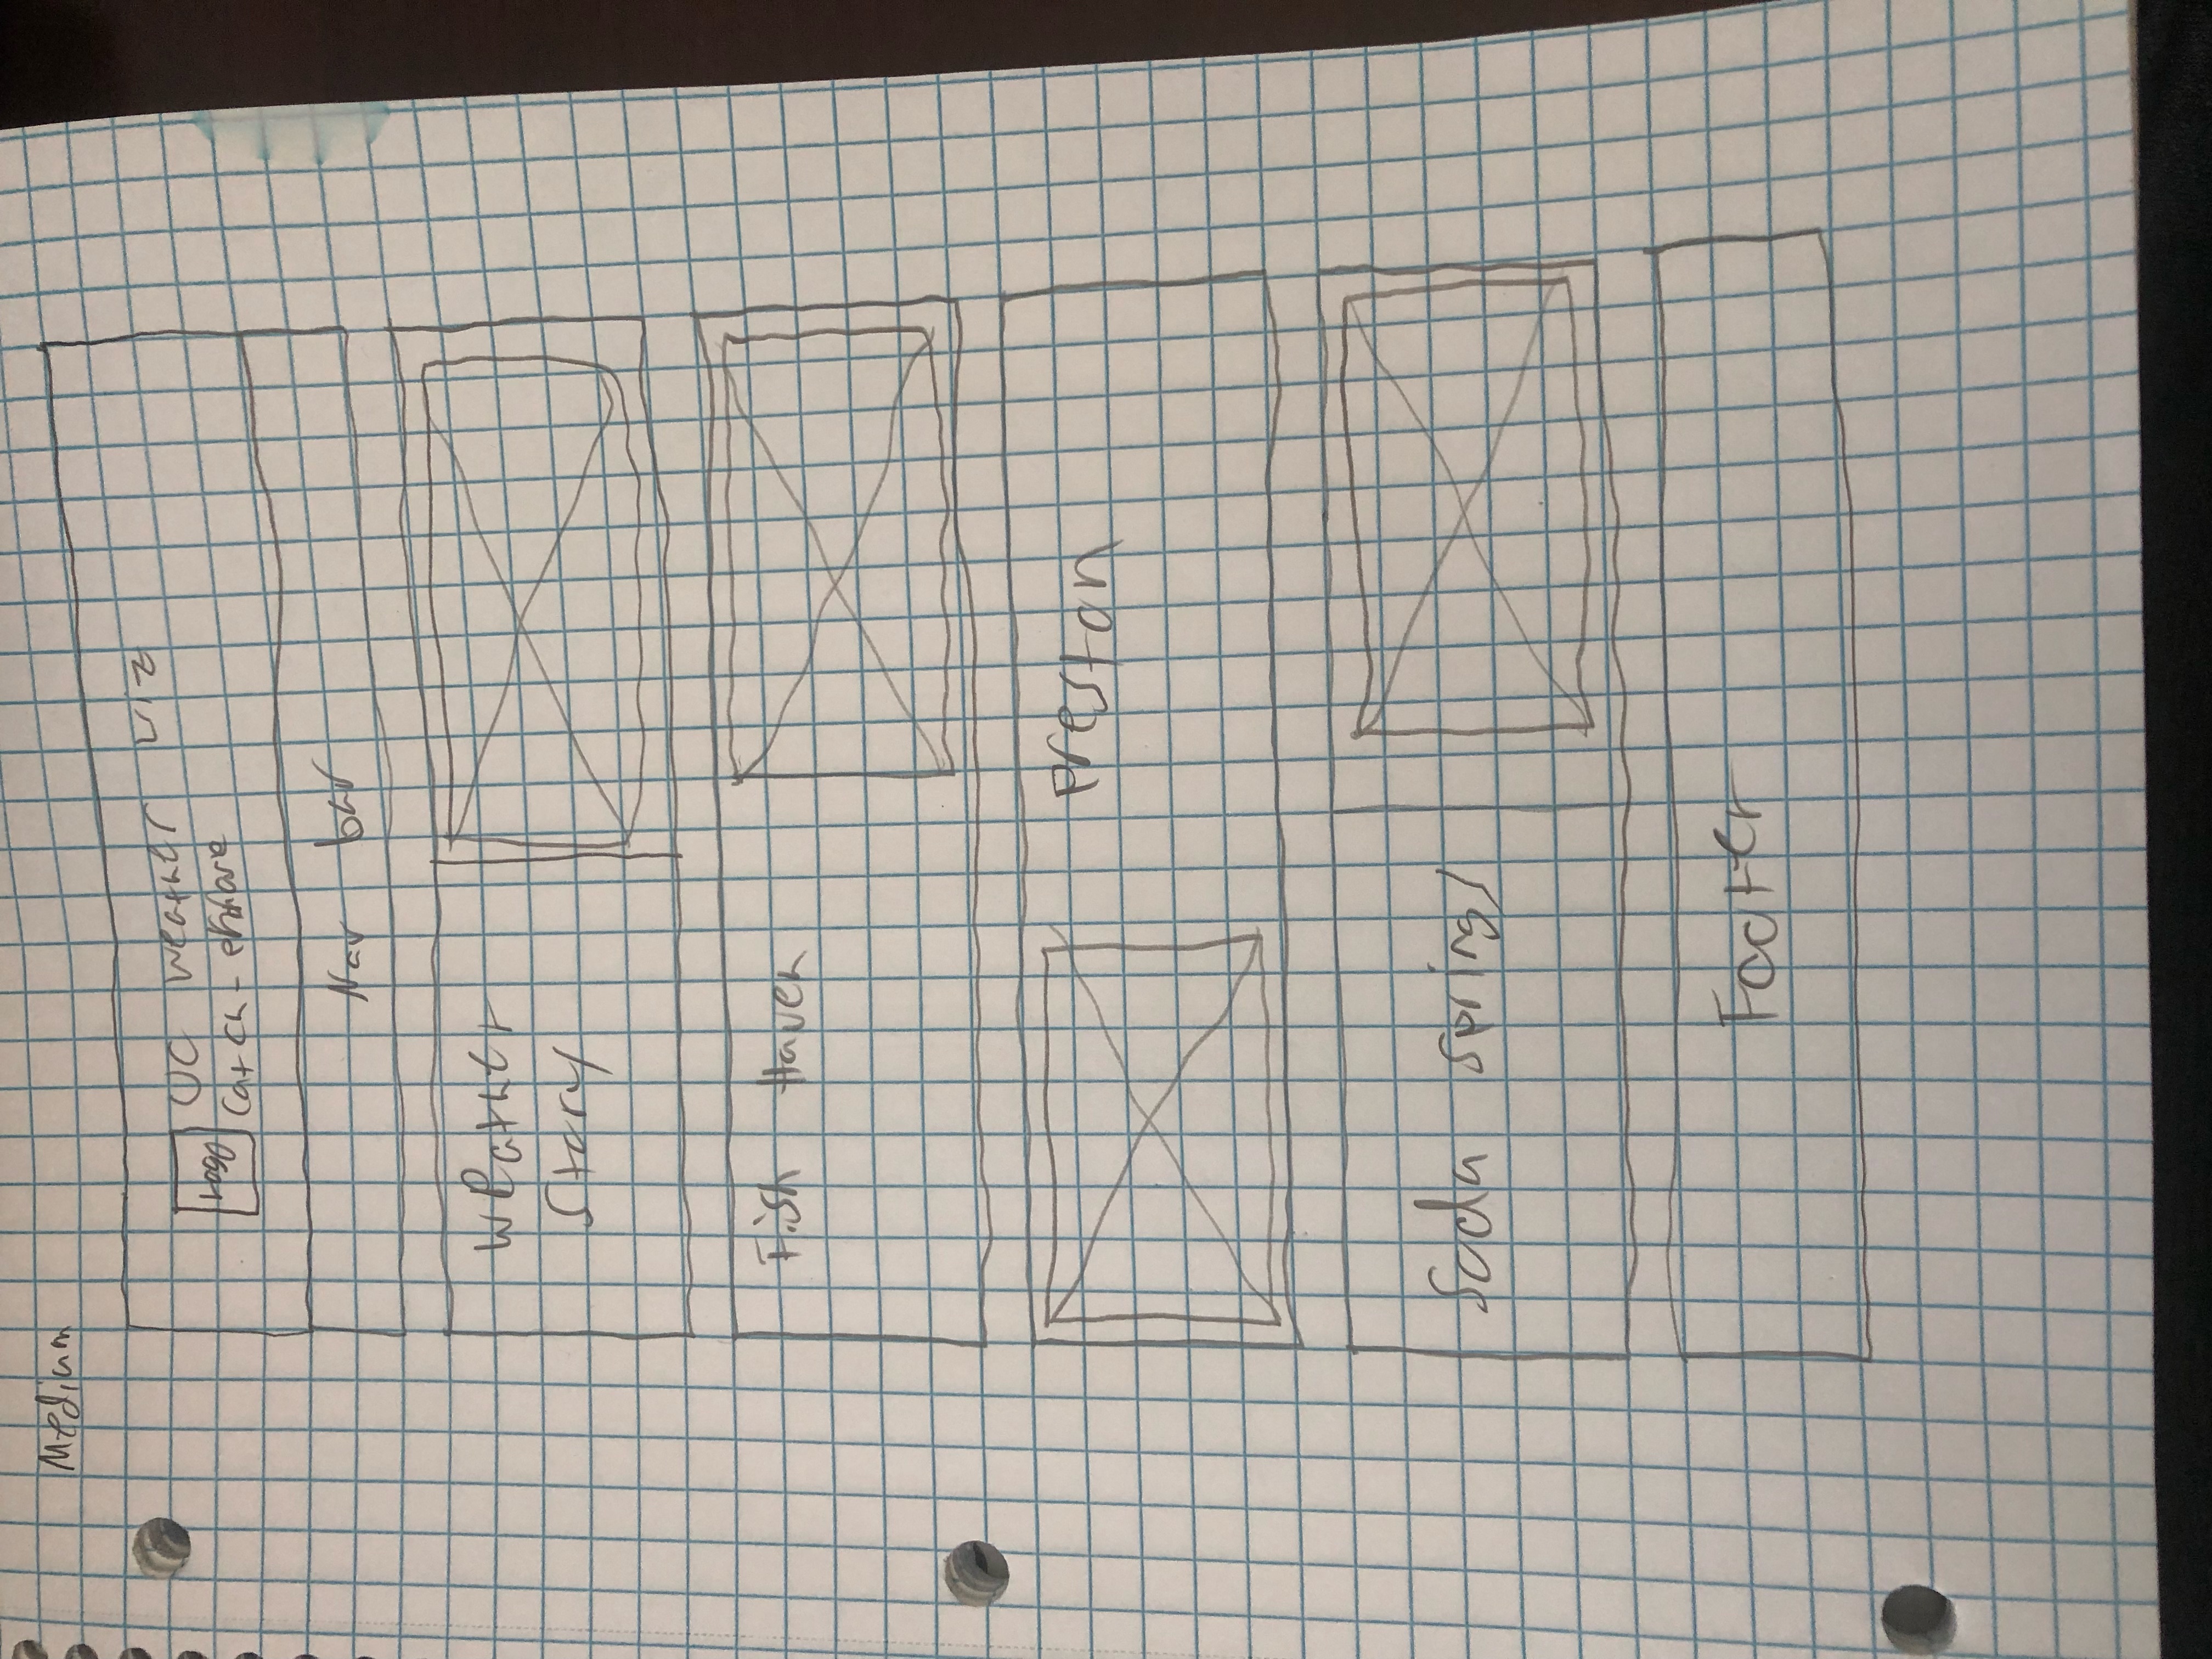 Medium
Logo
UC Weather Viz
Catch-phrase
Nav bar
Weather
Story
Fish Haven
Preston
Soda Springs
Footer